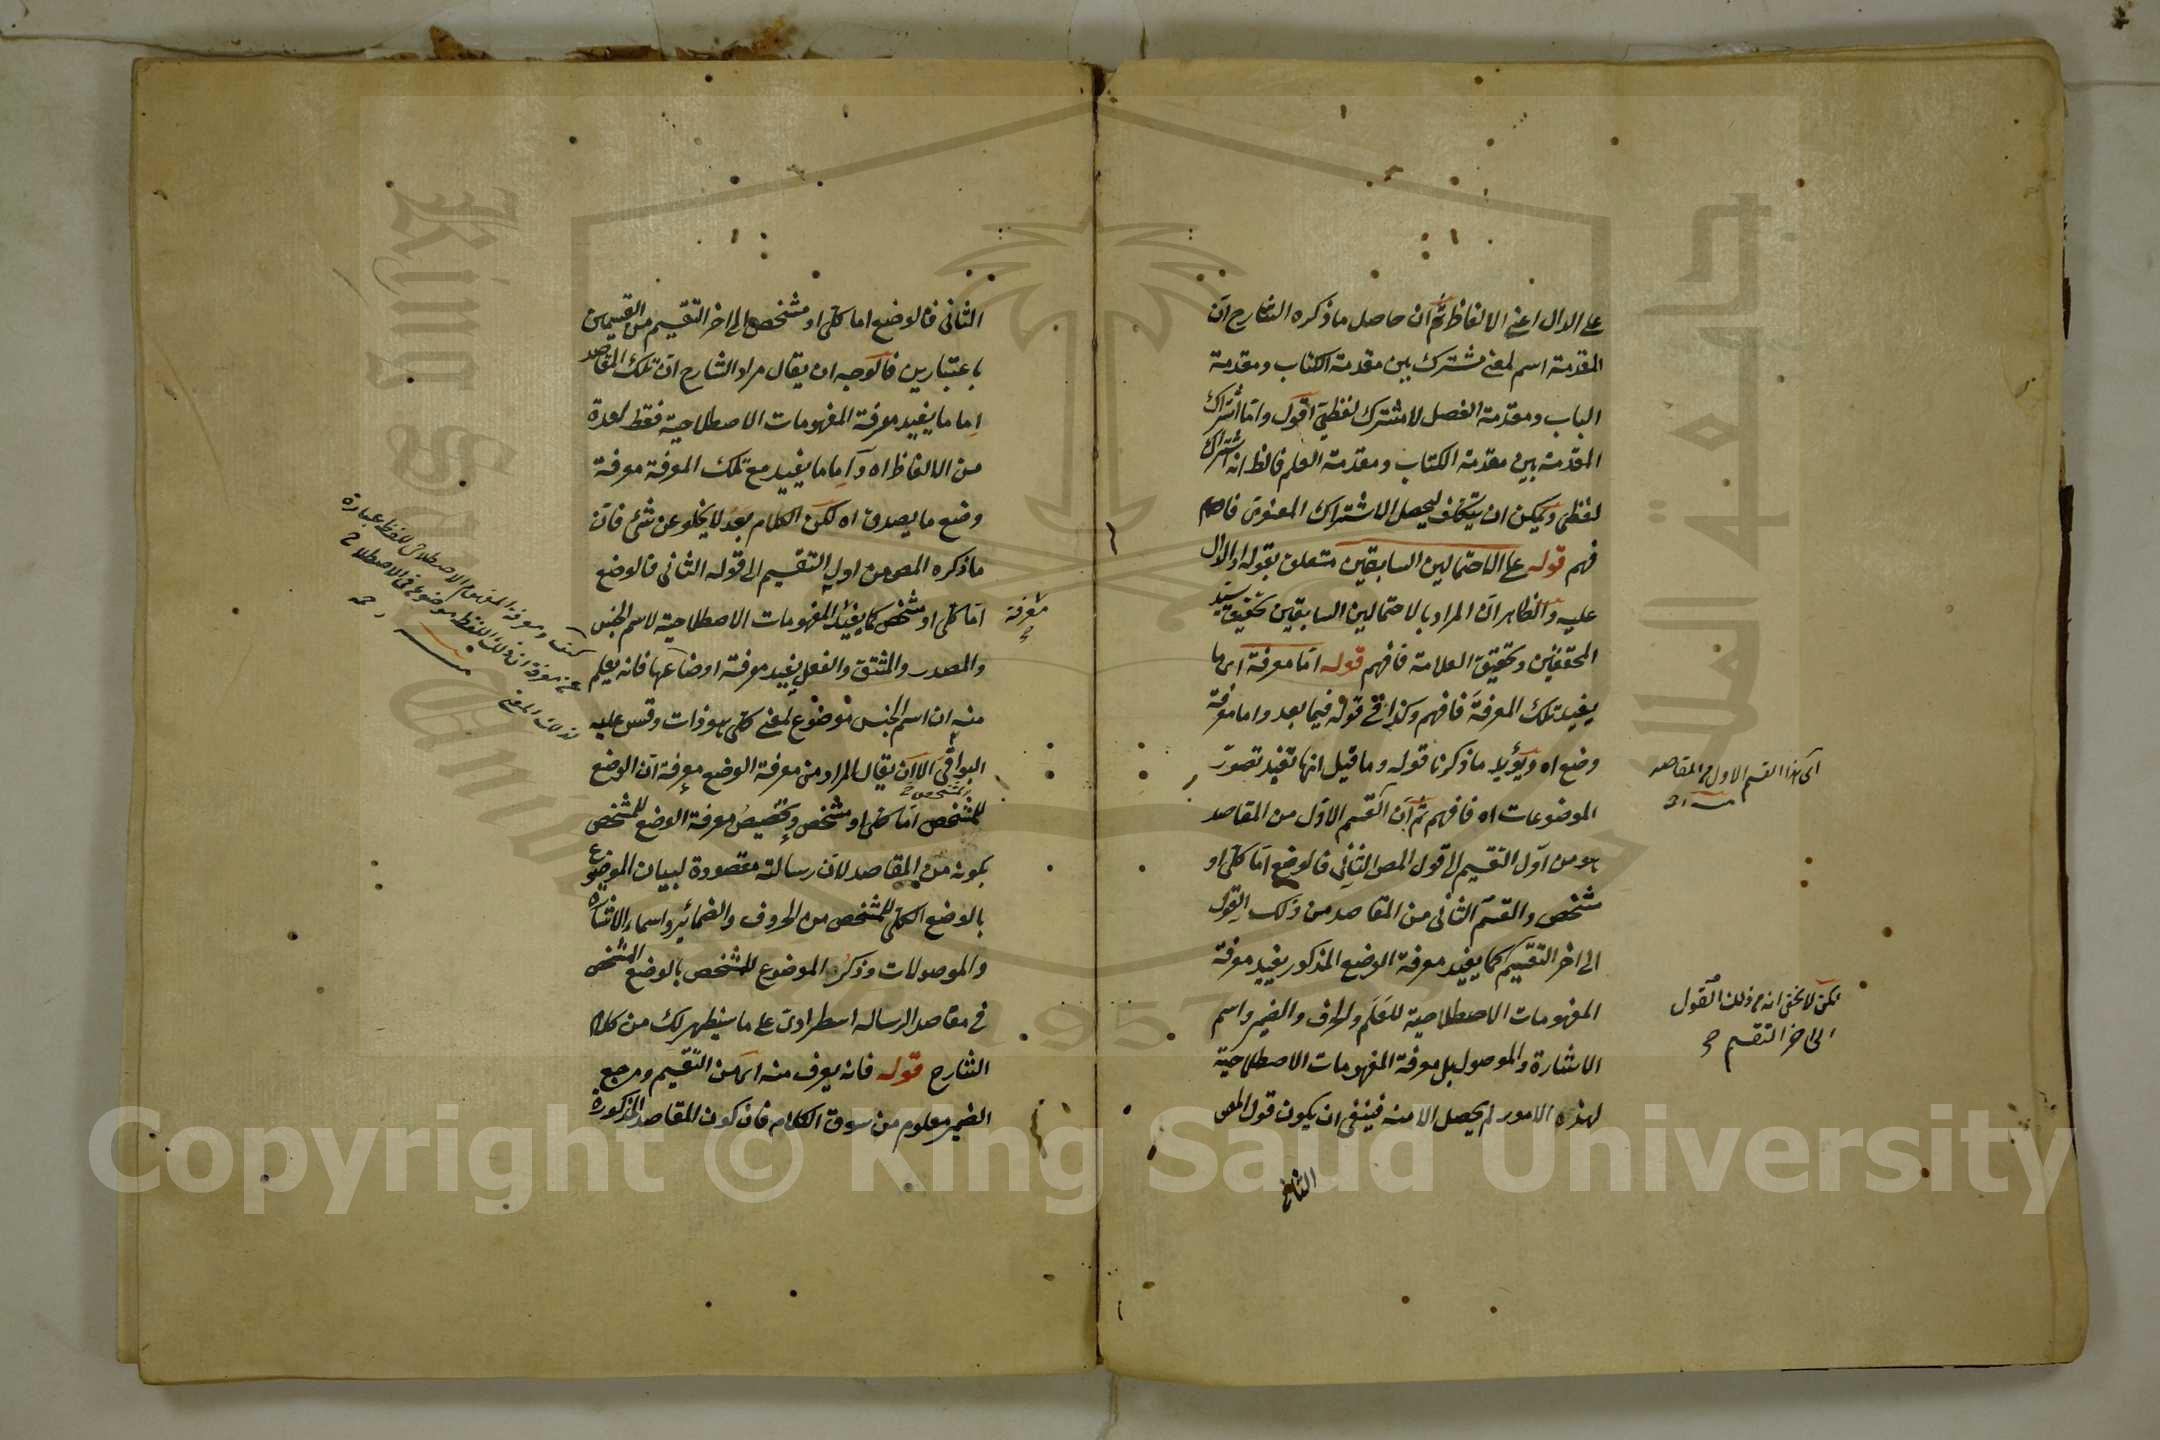 على الدال اعنى الالفاظ ثم ان حاصل ما ذكره الشارح ان
المقدمة اسم لمعنى مشترك بين مقدمة الكتاب ومقدمة
الباب ومقدمة الفصل لا مشترك لفظى اقول واما اشتراك
المقدمة بين مقدمة الكتاب ومقدمة العلم فالظ انه اشتراك
لفظى ويمكن ان يتكلف ليحصل الاشتراك المعنوى
فهم قوله على الاحتمالين السابقين متعلق بقوله او الدال
عليه والظاهر ان المراد بالاحتمالين السابقين تحقيق سيد
المحققين وتحقيق العلامة فافهم قوله اما معرفة اى ما
يفيد تلك المعرفة فافهم وكذا فى قوله فيما بعد واما معرفة
وضع اه ويؤيد ما ذكرنا قوله وما قيل انها تفيد تصور
الموضوعات اه فافهم ثم ان القسم الاول من المقاصد
هو من اول التقسيم الى قول المص الثانى فالوضع اما كلى او
مشخص والقسم الثانى من المقاصد من ذلك القول
الى اخر التقسيم كما يفيد معرفة الوضع المذكور يفيد معرفة
المفهومات الاصطلاحية للعلم والحرف والضمير واسم
الاشارة والموصول بل معرفة المفهومات الاصطلاحية
لهذه الامور لم يحصل الا منه فينبغى ان يكون قول المص
الثانى
اى هذا القسم الاول من المقاصد
لكن لا يخفى انه من ذلك القول
الى اخر التقسيم
الثانى فالوضع اما كلى او مشخص الى اخر التقسيم من القسمين
باعتبارين فالوجه ان يقال مراد الشارح ان تلك المقاصد
اما ما يفيد معرفة المفهومات الاصطلاحية فقط لعدة
من الالفاظ اه واما ما يفيد مع تلك المعرفة معرفة
وضع ما يصدق اه لكن الكلام بعد لا يخلو عن شئ فان
ما ذكره المص من اول التقسيم الى قوله الثانى فالوضع
اما كلى او مشخص كما يفيد المفهومات الاصطلاحية لاسم الجنس
معرفة
والمصدر والمشتق والفعل يفيد معرفة اوضاعها فانه يعلم
منه ان اسم الجنس موضوع لمعنى كلى هو ذات وقس عليه
البواقى الا ان يقال المراد من معرفة الوضع معرفة ان الوضع
للمشخص اما كلى او مشخص وتخصيص معرفة الوضع للمشخص
بكونه من المقاصد لان رسالته مقصودة لبيان الموضوع
بالوضع الكلى للمشخص من الحروف والضمائر واسماء الاشارة
والموصولات وذكر الموضوع للمشخص بالوضع المشخص
فى مقاصد الرسالة استطرادى على ما سيظهر لك من كلام
الشارح قوله فانه يعرف منه اى من التقسيم ومرجع
الضمير معلوم من سوق الكلام فان كون المقاصد المذكورة
ومعرفة المفهوم الاصطلاحى للفظ عبارة
عن معرفة ان ذلك اللفظ موضوع فى الاصطلاح
لذلك المعنى
Copyright © King Saud University
جامعة الملك
King Saud
1957